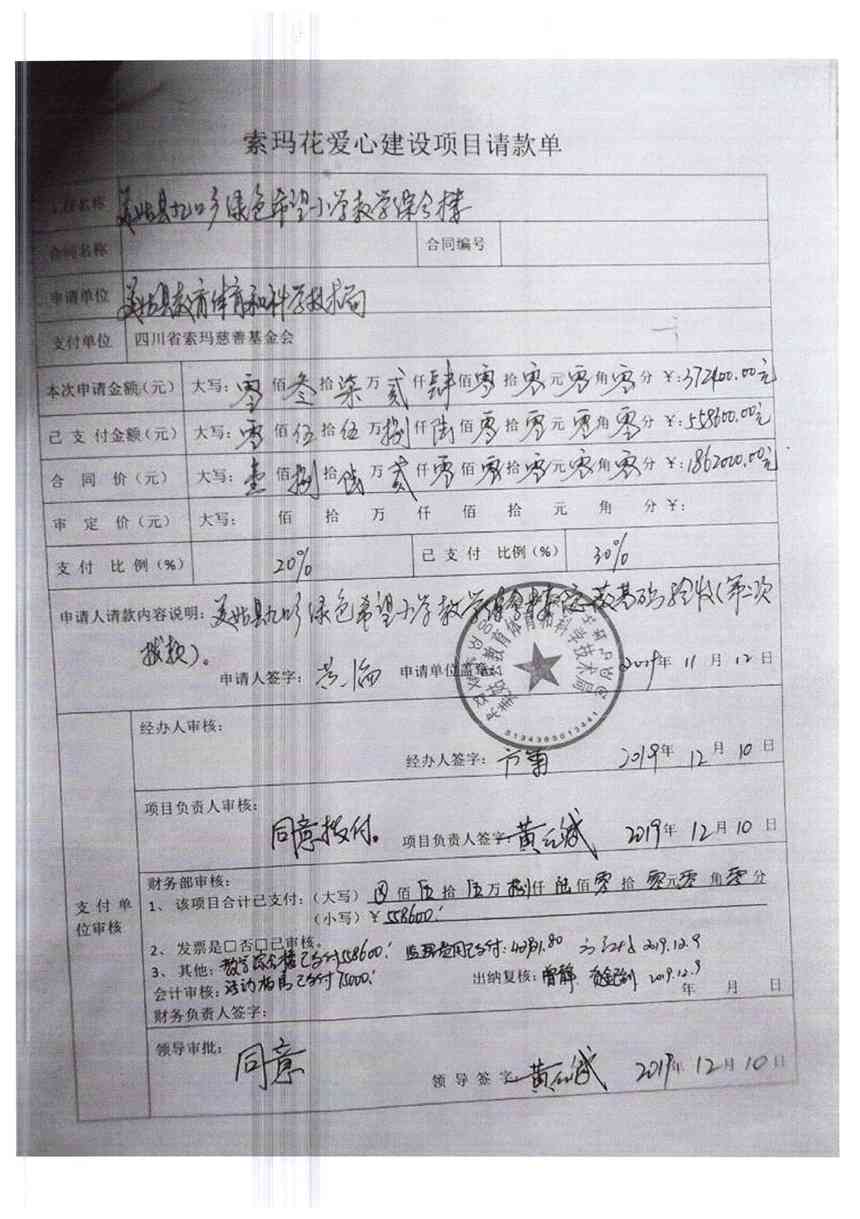 索玛花爱心建设项目请款单
工程名称 美姑县九口乡绿色希望小学教学综合楼
合同名称 合同编号
申请单位 美姑县教育体育和科学技术局
支付单位 四川省索玛慈善基金会
本次申请金额(元) 大写: 零佰叁拾柒万贰仟肆佰零拾零元零角零分 ¥:372400.00元
已支付金额(元) 大写: 零佰伍拾伍万捌仟陆佰零拾零元零角零分 ¥:558600.00元
合同价(元) 大写: 壹佰捌拾陆万贰仟零佰零拾零元零角零分 ¥:1862000.00元
审定价(元) 大写: 佰 拾 万 仟 佰 拾 元 角 分 ¥:
支付比例(%) 20% 已支付比例(%) 30%
申请人请款内容说明: 美姑县九口乡绿色希望小学教学综合楼 基础验收(第二次
拨款)。
申请人签字: 申请单位盖章: 2019年11月12日
美姑县教育体育和科学技术局
5134360013441
支付单位审核
经办人审核:
经办人签字: 2019年12月10日
项目负责人审核:
同意拨付。 项目负责人签字: 2019年12月10日
财务部审核:
1、该项目合计已支付:(大写) 佰伍拾伍万捌仟陆佰零拾零元零角零分
(小写)¥558600.
2、发票是□否□已审核。
3、其他: 教学综合楼已支付558600. 监理费用已支付: 2019.12.9
会计审核: 已支付75000. 出纳复核: 曾静 2019.12.9
年 月 日
财务负责人签字:
领导审批: 同意
领导签字: 2019年12月10日